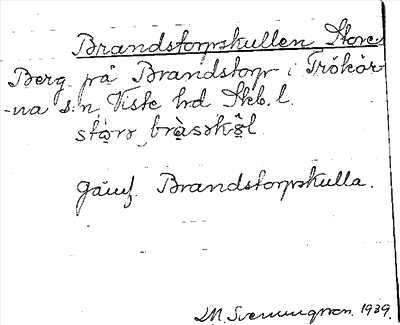 Brandstorpskullen Store
Berg på Brandstorp i Trökör-
na s:n Viste hd Skb. l.
stọ̀rə bràsəkŏ̤l
Jämf. Brandstorpskulla.
M. Svenungsson. 1939.